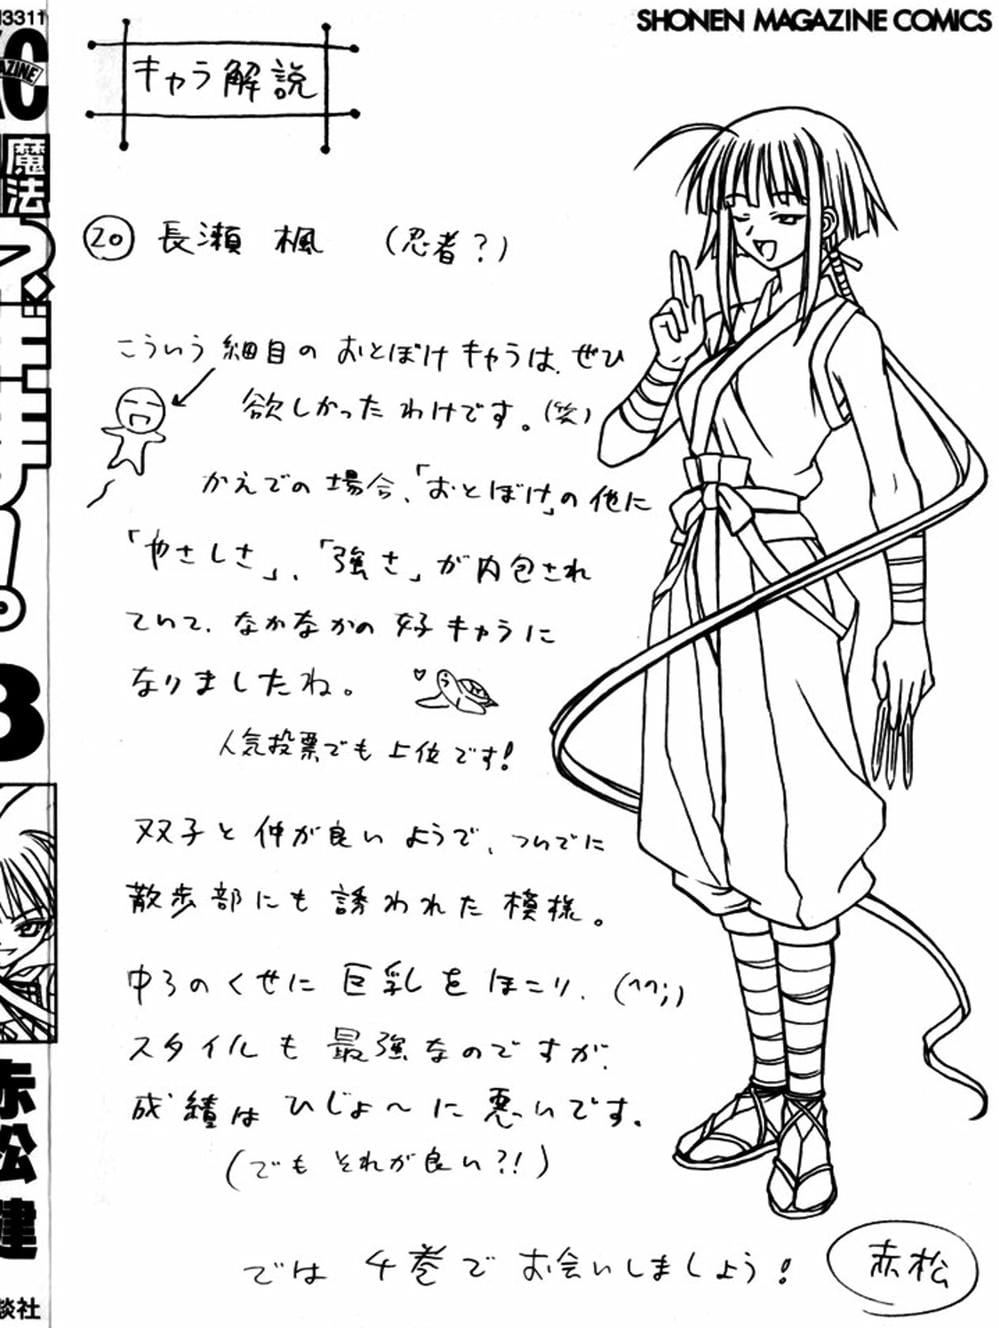 SHONEN MAGAZINE COMICS
キャラ解説
⑳ 長瀬 楓 (忍者?)
こういう細目のおとぼけキャラは、ぜひ
欲しかったわけです。(笑)
かえでの場合、「おとぼけ」の他に
「やさしさ」、「強さ」が内包され
ていて、なかなかの好キャラに
なりましたね。
人気投票でも上位です!
双子と仲が良いようで、ついでに
散歩部にも誘われた模様。
中3のくせに巨乳をほこり、(^^;)
スタイルも最強なのですが、
成績はひじょ〜に悪いです。
(でもそれが良い?!)
では4巻でお会いしましょう!
赤松
3311
魔法
ネギま!
3
赤松健
談社